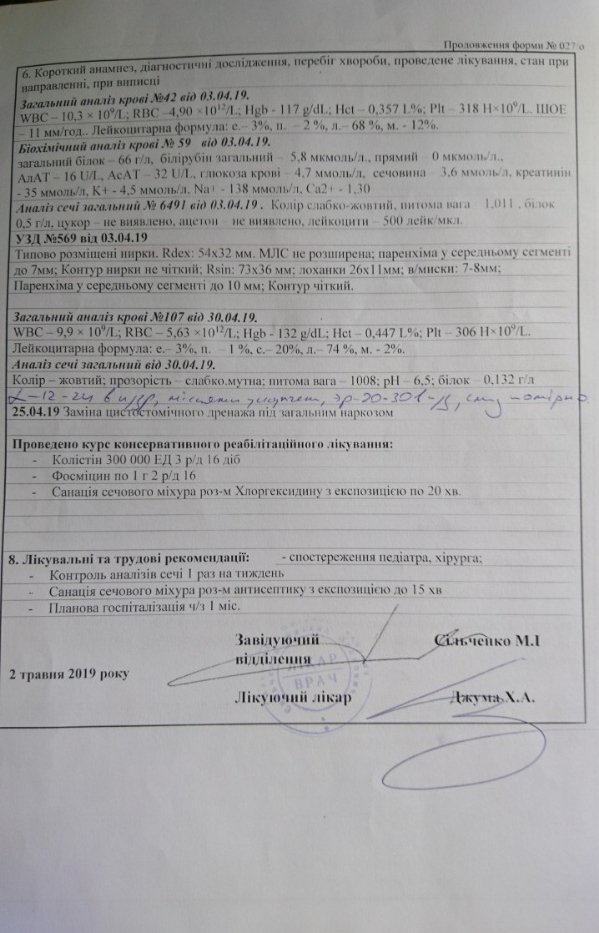 Продовження форми № 027/о
6. Короткий анамнез, діагностичні дослідження, перебіг хвороби, проведене лікування, стан при
направленні, при виписці
Загальний аналіз крові №42 від 03.04.19.
WBC – 10,3 × 10⁹/L; RBC –4,90 ×10¹²/L; Hgb - 117 g/dL; Hct – 0,357 L%; Plt – 318 H×10⁹/L. ШОЕ
– 11 мм/год.. Лейкоцитарна формула: е.– 3%, п. – 2 %, л.– 68 %, м. - 12%.
Біохімічний аналіз крові № 59 від 03.04.19.
загальний білок – 66 г/л, білірубін загальний – 5,8 мкмоль/л., прямий – 0 мкмоль/л.,
АлАТ – 16 U/L, АсАТ – 32 U/L, глюкоза крові – 4,7 ммоль/л, сечовина – 3,6 ммоль/л, креатинін
- 35 ммоль/л, K+ - 4,5 ммоль/л, Na+ - 138 ммоль/л, Ca2+ - 1,30
Аналіз сечі загальний № 6491 від 03.04.19 . Колір слабко-жовтий, питома вага – 1,011 , білок
0,5 г/л, цукор – не виявлено, ацетон – не виявлено, лейкоцити – 500 лейк/мкл.
УЗД №569 від 03.04.19
Типово розміщені нирки. Rdex: 54x32 мм. МЛС не розширена; паренхіма у середньому сегменті
до 7мм; Контур нирки не чіткий; Rsin: 73x36 мм; лоханки 26x11мм; в/миски: 7-8мм;
Паренхіма у середньому сегменті до 10 мм; Контур чіткий.
Загальний аналіз крові №107 від 30.04.19.
WBC – 9,9 × 10⁹/L; RBC – 5,63 ×10¹²/L; Hgb - 132 g/dL; Hct – 0,447 L%; Plt – 306 H×10⁹/L.
Лейкоцитарна формула: е.– 3%, п. – 1 %, с.– 20%, л.– 74 %, м. - 2%.
Аналіз сечі загальний від 30.04.19.
Колір – жовтий; прозорість – слабко.мутна; питома вага – 1008; pH – 6,5; білок – 0,132 г/л
25.04.19 Заміна цистостомічного дренажа під загальним наркозом
Проведено курс консервативного реабілітаційного лікування:
- Колістін 300 000 ЕД 3 р/д 16 діб
- Фосміцин по 1 г 2 р/д 16
- Санація сечового міхура роз-м Хлоргексидину з експозицією по 20 хв.
8. Лікувальні та трудові рекомендації: - спостереження педіатра, хірурга;
- Контроль аналізів сечі 1 раз на тиждень
- Санація сечового міхура роз-м антисептику з експозицією до 15 хв
- Планова госпіталізація ч/з 1 міс.
Завідуючий
відділення Сільченко М.І
2 травня 2019 року
ЛІКАР
ВРАЧ
Лікуючий лікар Джума Х.А.